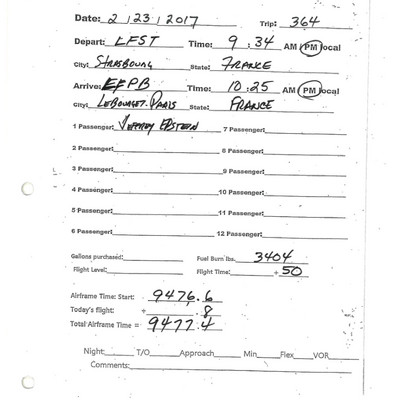 Date: 2 / 23 / 2017 Trip: 364
Depart: LFST Time: 9 : 34 AM PM local
City: STRASBOURG State: FRANCE
Arrive: EFPB Time: 10:25 AM PM local
City: LEBOURGET-PARIS State: FRANCE
1 Passenger: JEFFREY EPSTEIN 7 Passenger:
2 Passenger: 8 Passenger:
3 Passenger: 9 Passenger:
4 Passenger: 10 Passenger:
5 Passenger: 11 Passenger:
6 Passenger: 12 Passenger:
Gallons purchased: Fuel Burn lbs. 3404
Flight Level: Flight Time: + 50
Airframe Time: Start: 9476.6
Today's flight: + .8
Total Airframe Time = 9477.4
Night: T/O Approach Min Flex VOR
Comments: